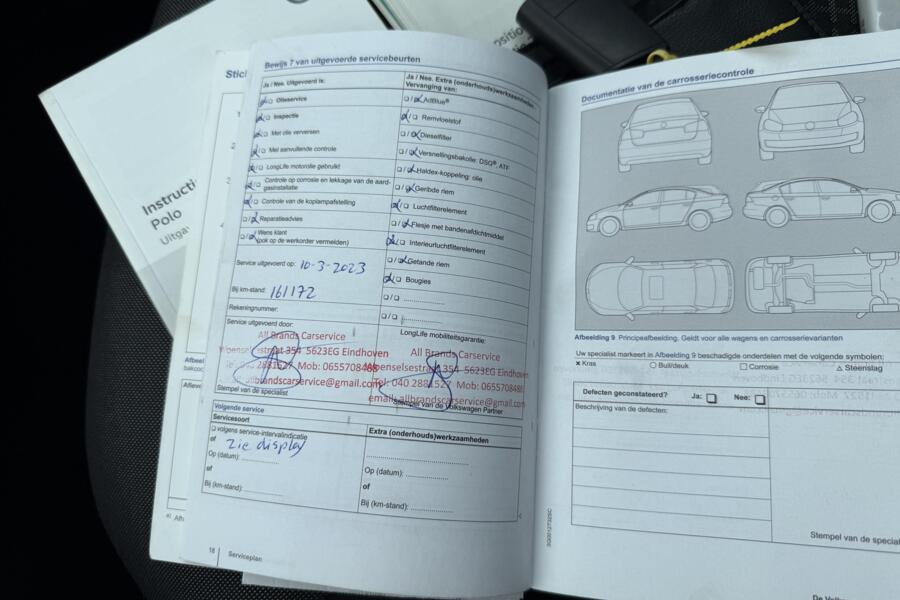 Instructi
Polo
Uitgav
Stic
Bewijs 7 van uitgevoerde servicebeurten
Ja / Nee. Uitgevoerd is:
Olieservice
Inspectie
Met olie verversen
Met aanvullende controle
LongLife motorolie gebruikt
Controle op corrosie en lekkage van de aard-
gasinstallatie
Controle van de koplampafstelling
Reparatieadvies
Wens klant
(ook op de werkorder vermelden)
Service uitgevoerd op: 10-3-2023
Bij km-stand: 161172
Rekeningnummer:
Service uitgevoerd door:
All Brands Carservice
Woenselsestraat 354 5623EG Eindhoven
Tel: 040 2881527 Mob: 0655708488
allbrandscarservice@gmail.com
Stempel van de specialist
Ja / Nee. Extra (onderhouds)werkzaamheden
Vervanging van:
AdBlue®
Remvloeistof
Dieselfilter
Versnellingsbakolie: DSG®, ATF
Haldex-koppeling: olie
Geribde riem
Luchtfilterelement
Flesje met bandenafdichtmiddel
Interieurluchtfilterelement
Getande riem
Bougies
LongLife mobiliteitsgarantie:
All Brands Carservice
Woenselsestraat 354 5623EG Eindhoven
Tel: 040 2881527 Mob: 0655708488
email: allbrandscarservice@gmail.com
Stempel van de Volkswagen Partner
Volgende service
Servicesoort
volgens service-intervalindicatie
of zie display
Op (datum):
of
Bij (km-stand):
Extra (onderhouds)werkzaamheden
Op (datum):
of
Bij (km-stand):
18 Serviceplan
Documentatie van de carrosseriecontrole
Afbeelding 9 Principeafbeelding. Geldt voor alle wagens en carrosserievarianten
Uw specialist markeert in Afbeelding 9 beschadigde onderdelen met de volgende symbolen:
× Kras ○ Buil/deuk □ Corrosie △ Steenslag
Defecten geconstateerd? Ja: Nee:
Beschrijving van de defecten:
Stempel van de special